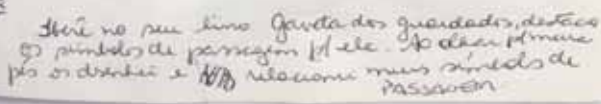 Iberê no seu livro Gaveta dos guardados, destaca
os símbolos de passagem p/ ele. Ao
pés os desenhei e relacionei meus símbolos de
PASSAGEM